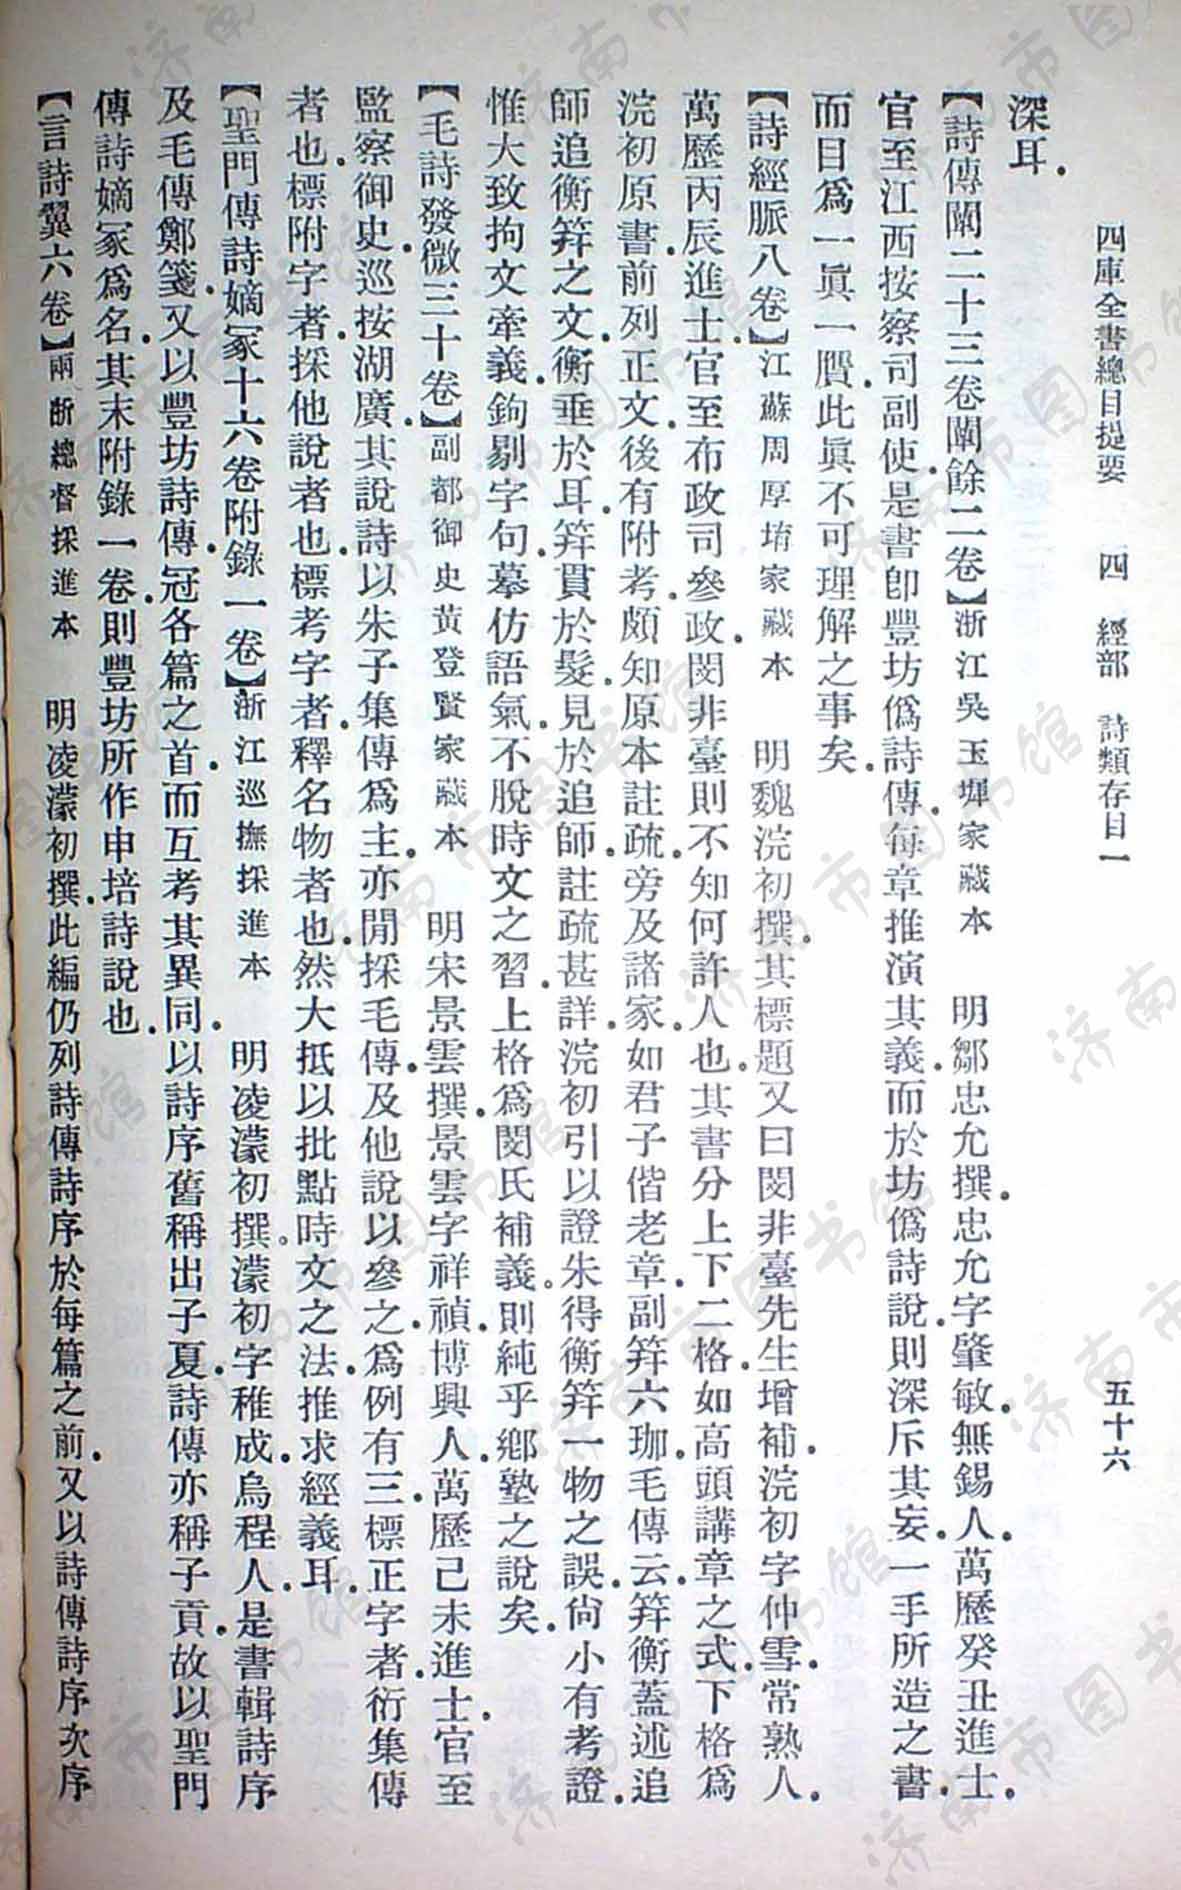 四庫全書總目提要　四　經部　詩類存目一　五十六
深耳．
【詩傳闡二十三卷闡餘二卷】浙江吳玉墀家藏本　明鄒忠允撰．忠允字肇敏．無錫人．萬歷癸丑進士．
官至江西按察司副使．是書卽豐坊僞詩傳．每章推演其義．而於坊僞詩說．則深斥其妄．一手所造之書．
而目爲一眞一贋．此眞不可理解之事矣．
【詩經脈八卷】江蘇周厚堉家藏本　明魏浣初撰．其標題又曰閔非臺先生增補．浣初字仲雪．常熟人．
萬歷丙辰進士．官至布政司參政．閔非臺則不知何許人也．其書分上下二格．如高頭講章之式．下格爲
浣初原書．前列正文．後有附考．頗知原本註疏．旁及諸家．如君子偕老章．副笄六珈．毛傳云．笄衡蓋述追
師追衡笄之文．衡垂於耳．笄貫於髮．見於追師．註疏甚詳．浣初引以證朱得衡笄一物之誤．尙小有考證．
惟大致拘文牽義．鉤剔字句．摹仿語氣．不脫時文之習．上格爲閔氏補義．則純乎鄕塾之說矣．
【毛詩發微三十卷】副都御史黃登賢家藏本　明宋景雲撰．景雲字祥禎．博興人．萬歷己未進士．官至
監察御史．巡按湖廣．其說詩以朱子集傳爲主．亦閒採毛傳及他說以參之．爲例有三．標正字者．衍集傳
者也．標附字者．採他說者也．標考字者．釋名物者也．然大抵以批點時文之法．推求經義耳．
【聖門傳詩嫡冢十六卷附錄一卷】浙江巡撫採進本　明凌濛初撰．濛初字稚成．烏程人．是書輯詩序
及毛傳鄭箋．又以豐坊詩傳．冠各篇之首．而互考其異同．以詩序舊稱出子夏．詩傳亦稱子貢．故以聖門
傳詩嫡冢爲名．其末附錄一卷．則豐坊所作申培詩說也．
【言詩翼六卷】兩浙總督採進本　明凌濛初撰．此編仍列詩傳詩序於每篇之前．又以詩傳詩序次序